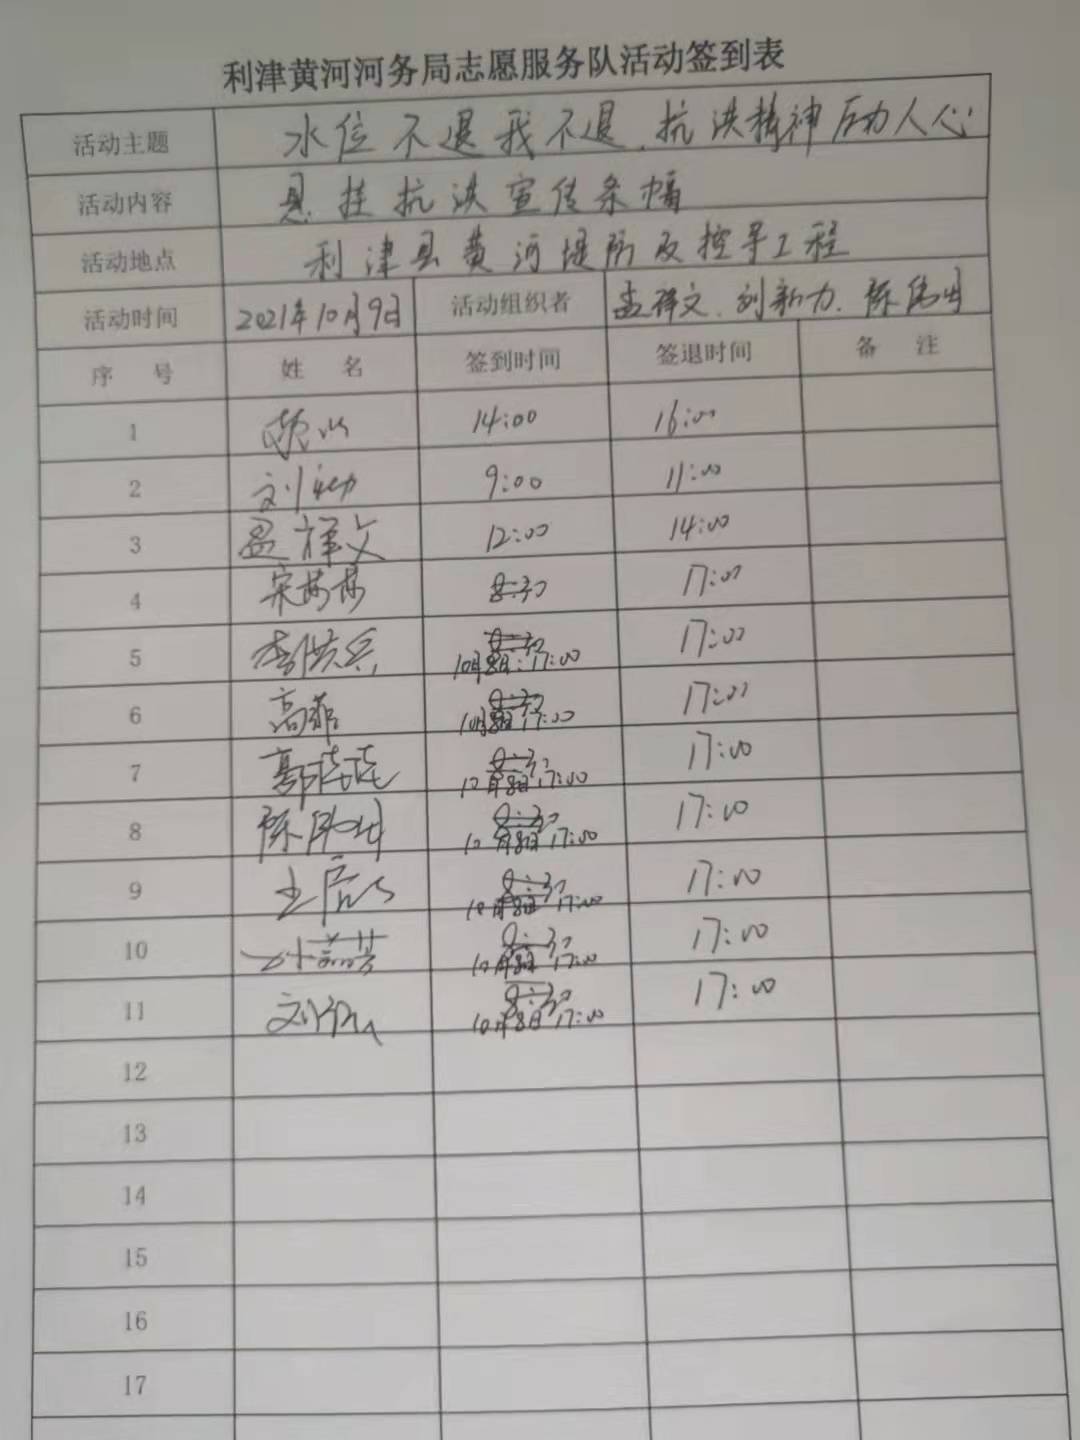 利津黄河河务局志愿服务队活动签到表
活动主题 水位不退我不退.抗洪精神动人心
活动内容 悬挂抗洪宣传条幅
活动地点 利津县黄河堤防及控导工程
活动时间 2021年10月9日 活动组织者 孟祥文.刘新力.陈
序 号 姓 名 签到时间 签退时间 备 注
1 14:00 16:00
2 刘 9:00 11:00
3 孟祥文 12:00 14:00
4 宋 8:30 17:00
5 李洪兵 8:30 10月8日:17:00 17:00
6 高菲 8:30 10月8日 17:00 17:00
7 8:30 10月8日 17:00 17:00
8 陈 8:30 10月8日 17:00 17:00
9 王 8:30 10月8日 17:00 17:00
10 8:30 10月8日 17:00 17:00
11 刘 8:30 10月8日 17:00 17:00
12
13
14
15
16
17